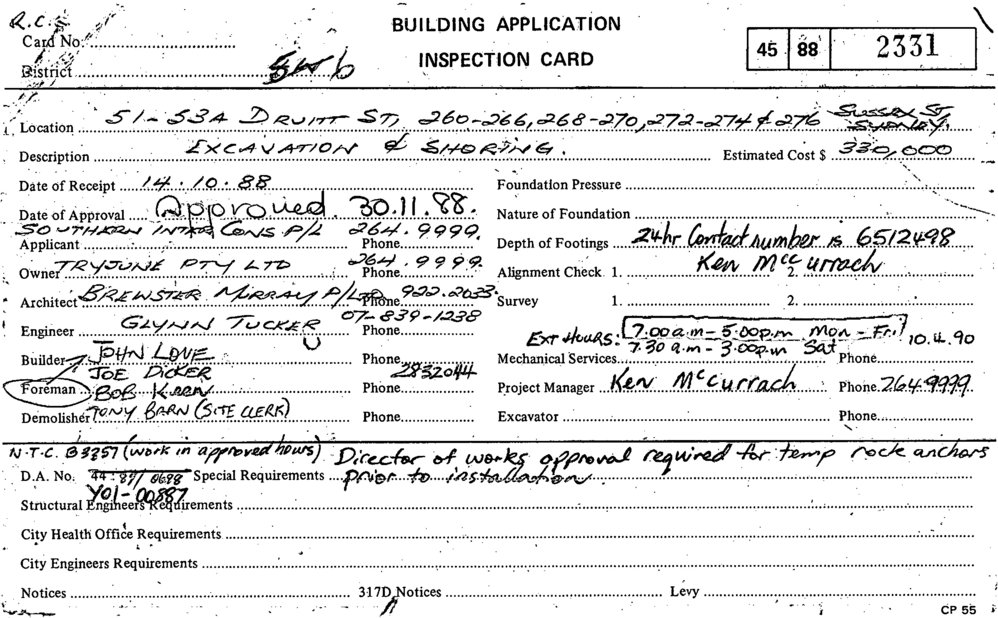 R.C.S
BUILDING APPLICATION
INSPECTION CARD
45 88 2331
Card No.
District
Location 51-53A DRUITT ST, 260-266, 268-270, 272-274 & 276 SUSSEX ST, SYDNEY.
Description EXCAVATION & SHORING. Estimated Cost $ 330,000
Date of Receipt 14.10.88 Foundation Pressure
Date of Approval Approved 30.11.88. Nature of Foundation
Applicant SOUTHERN INTER CONS P/L Phone 264.9999. Depth of Footings 24hr Contact number is 6512498
Owner TRYJUNE PTY LTD Phone 264.9999. Alignment Check 1. 2. Ken McCurrach
Architect BREWSTER MURRAY P/LTD Phone 922.2033. Survey 1. 2.
Engineer GLYNN TUCKER Phone 07-839-1238
EXT HOURS: 7.00a.m - 5.00p.m Mon - Fri 10.4.90
7.30 a.m - 3.00p.m Sat
Builder JOHN LOVE Phone Mechanical Services Phone
JOE DICKER 2832044
Foreman BOB KEEN Phone Project Manager Ken McCurrach Phone 264.9999.
Demolisher TONY BARN (SITE CLERK) Phone Excavator Phone
N.T.C. B3357 (work in approved hours) Director of works approval required for temp rock anchors
D.A. No. 44-87/0698 Special Requirements prior to installation
Y01-00887
Structural Engineers Requirements
City Health Office Requirements
City Engineers Requirements
Notices 317D Notices Levy
CP 55